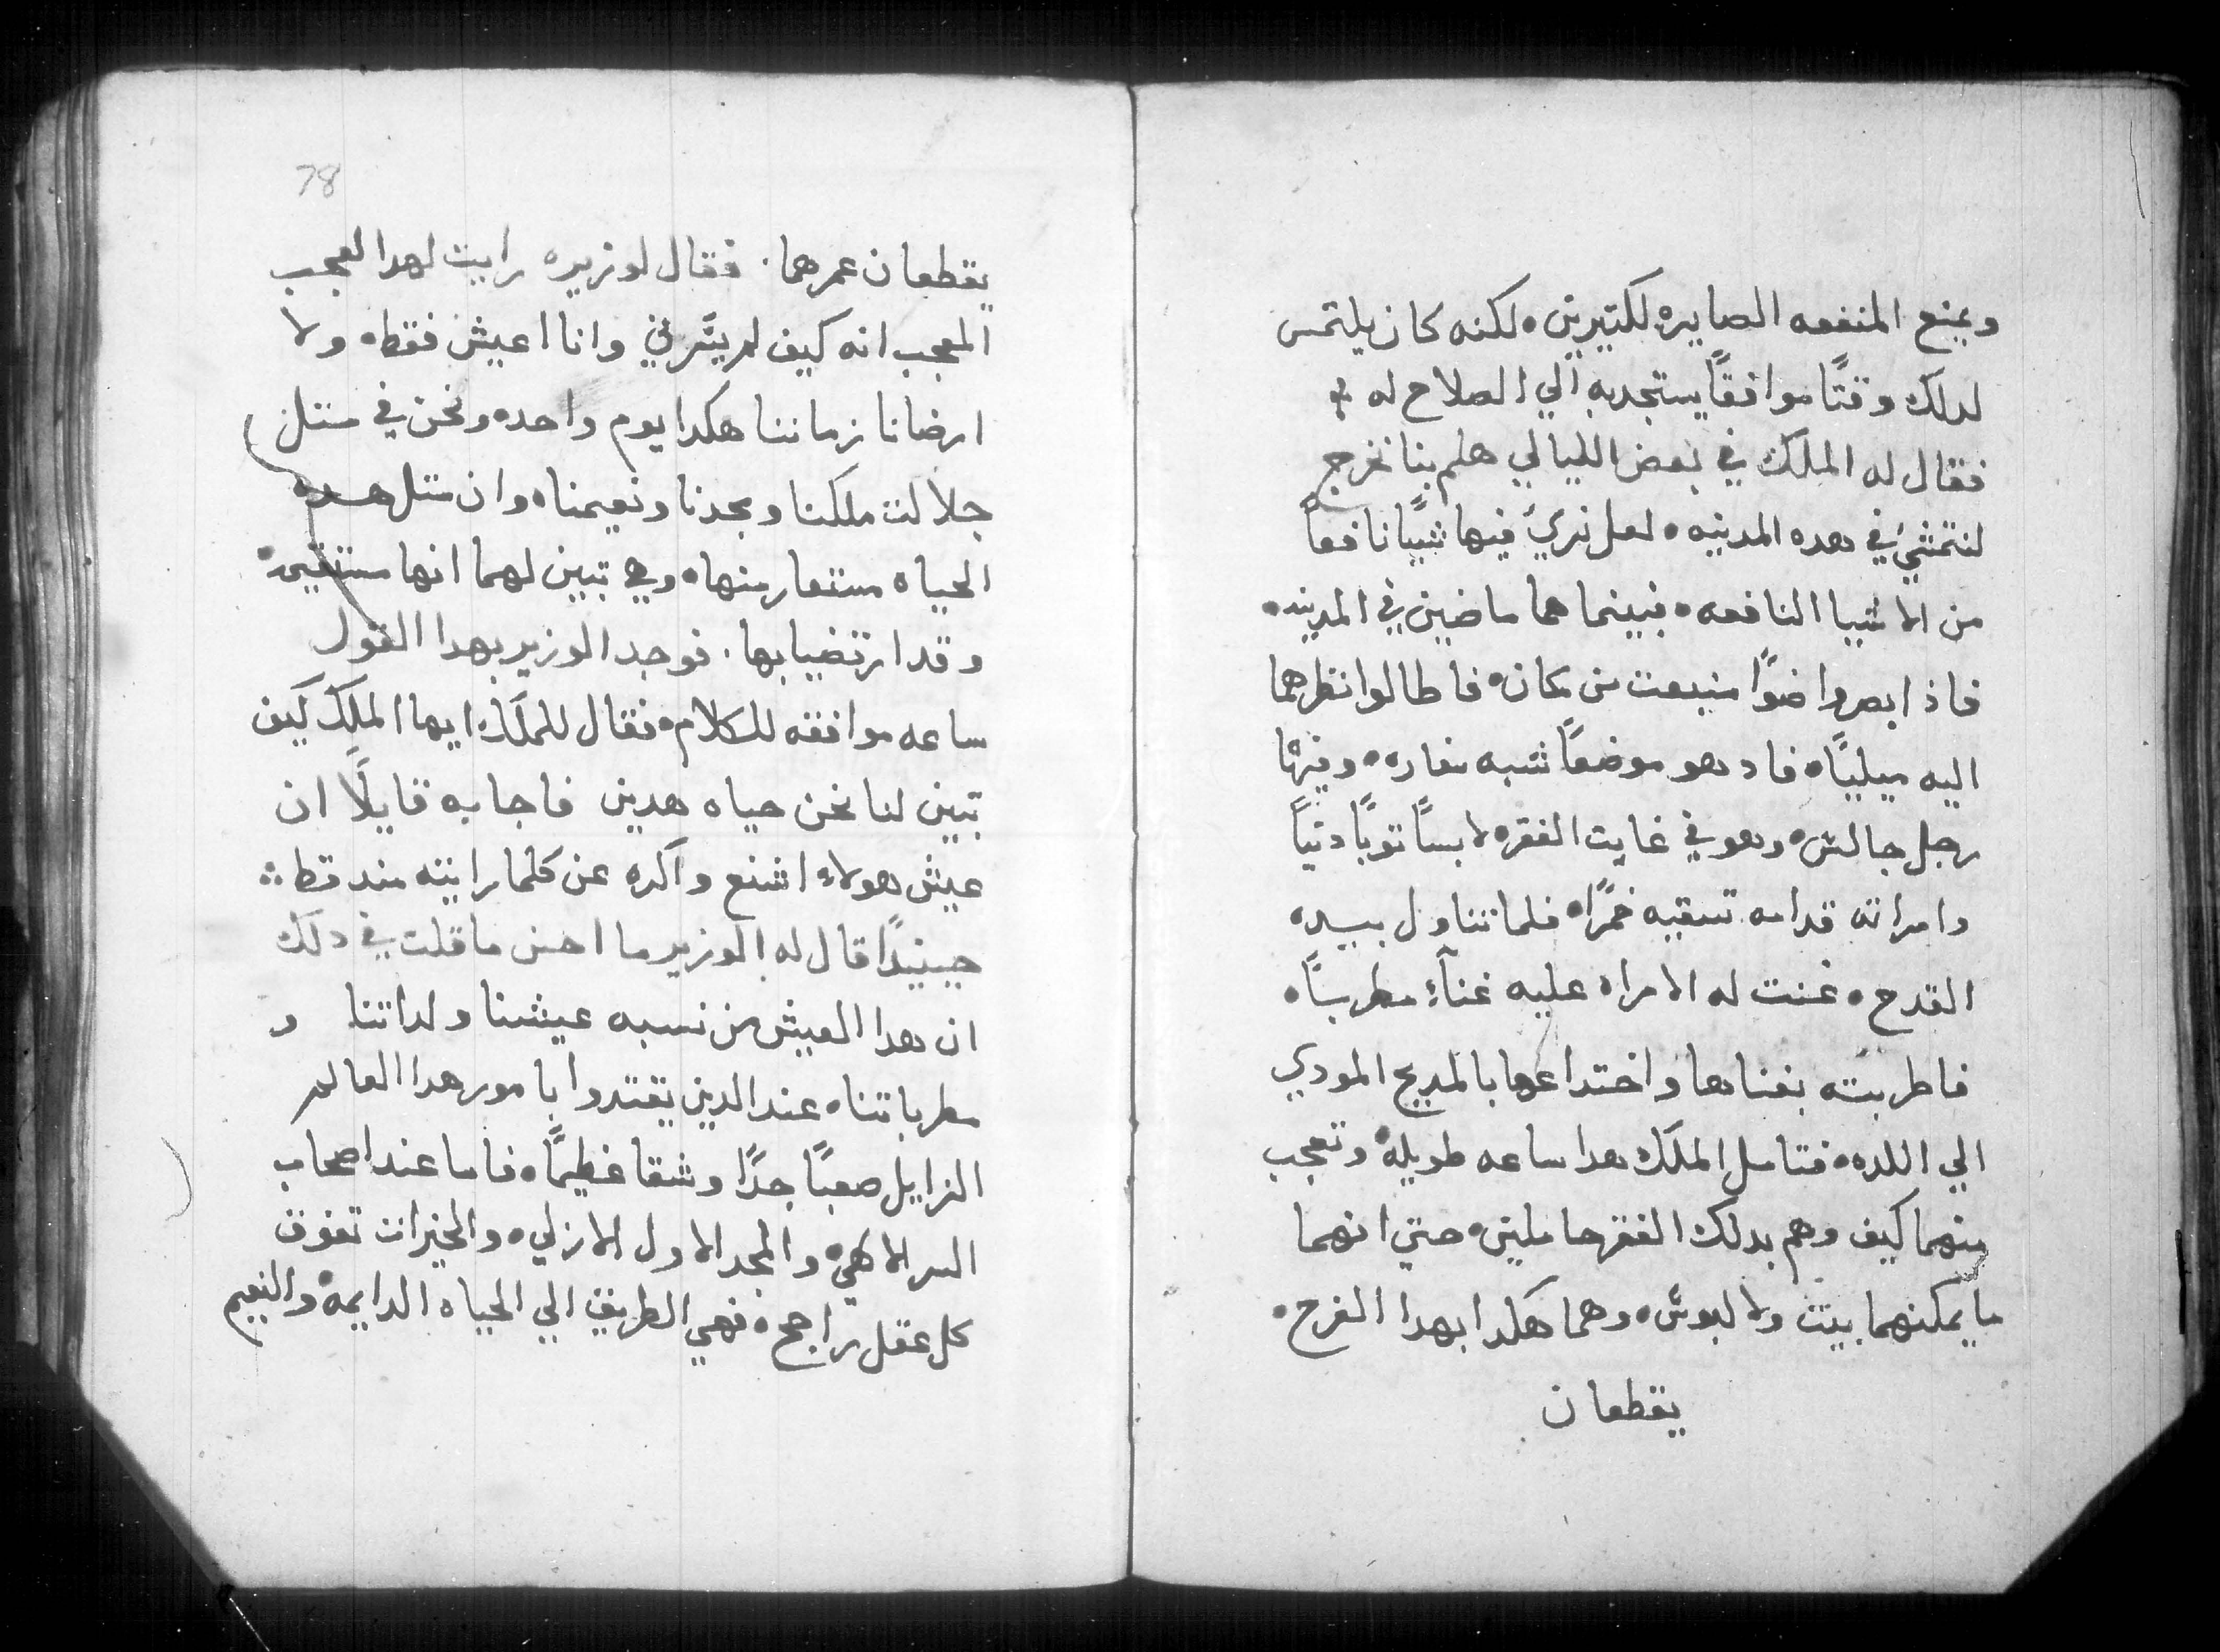 ويمنع المنفعه الصايره لكتيرين ه لكنه كان يلتمس
لدلك وقتًا موافقًا يستجدبه الي الصلاح له ❊
فقال له الملك في بعض الليالي هلم بنا نخرج
لنتمشي في هده المدينه ه لعل نري فيها شيًا نافعاً
من الاشيا النافعه ه فبينما هما ماضيين في المدينه ه
فاذ ابصروا ضوًا منبعت من مكان ه فاطالوا نظرهما
اليه ميليًا ه فاد هو موضعًا شبه مغاره ه وفيها
رجل جالس ه وهو في غايت الفقر ه لابسًا توبًا دنيًا
وامراته قدامه تسقيه خمرًا ه فلما تناول بيده
القدح ه غنت له الامراه عليه غنآءً مطربًا ه
فاطربته بغناها واختداعها بالمديح المودي
الي اللده ه فتامل الملك هدا ساعه طويله وتعجب
منهما كيف وهم بدلك الفقر حاملين ه حتي انهما
ما يمكنهما بيت ولا لبوس ه وهما هكدا بهدا الفرح ه
يقطعان
78
يقطعان عمرهما . فقال لوزيره رايت لهدا العجب
المعجب انه كيف لم يسرني وانا اعيش فقط ه ولا
ارضانا زماننا هكدا يوم واحد ه ونحن في متل
جلالت ملكنا ومجدنا ونعيمنا ه وان متل هده
الحياه مستعار منها ه وهي تبين لهما انها مستقيمة
وقد ارتضيا بها . فوجد الوزير بهدا القول
ساعه موافقه للكلام ه فقال للملك ايها الملك كيف
تبين لنا نحن حياه هدين فاجابه قايلًا ان
عيش هولاء اشنع واكره عن كلما رايته مند قط ❊
حينيدًا قال له الوزير ما احسن ما قلت في دلك
ان هدا العيش من نسبه عيشنا ولداتنا و
مطرباتنا ه عند الدين يقتدوا بامور هدا العالم
الزايل صعبًا جدًا وشقا عظيمًا ه فاما عند اصحاب
السر الالاهي ه والمجد الاول الازلي ه والخيرات تفوق
كل عقل راجح ه فهي الطريق الي الحياه الدايمه والنعيم